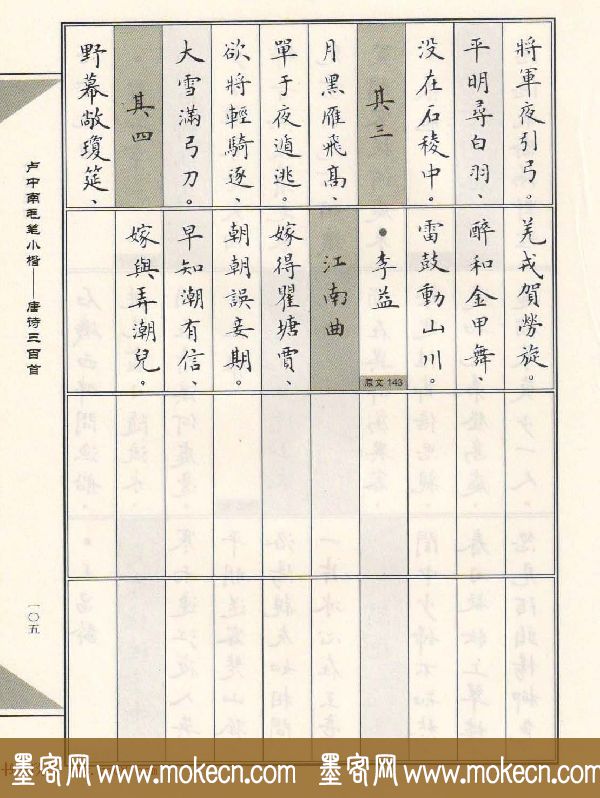 將軍夜引弓。
平明尋白羽、
没在石稜中。
其三
月黑雁飛高、
單于夜遁逃。
欲將輕騎逐、
大雪滿弓刀。
其四
野幕敞瓊筵、
羌戎賀勞旋。
醉和金甲舞、
雷鼓動山川。
•李益
原文 143
江南曲
嫁得瞿塘賈、
朝朝誤妾期。
早知潮有信、
嫁與弄潮兒。
卢中南毛笔小楷——唐诗三百首
一〇五
墨客网 www.mokecn.com 墨客网 www.mokecn.com